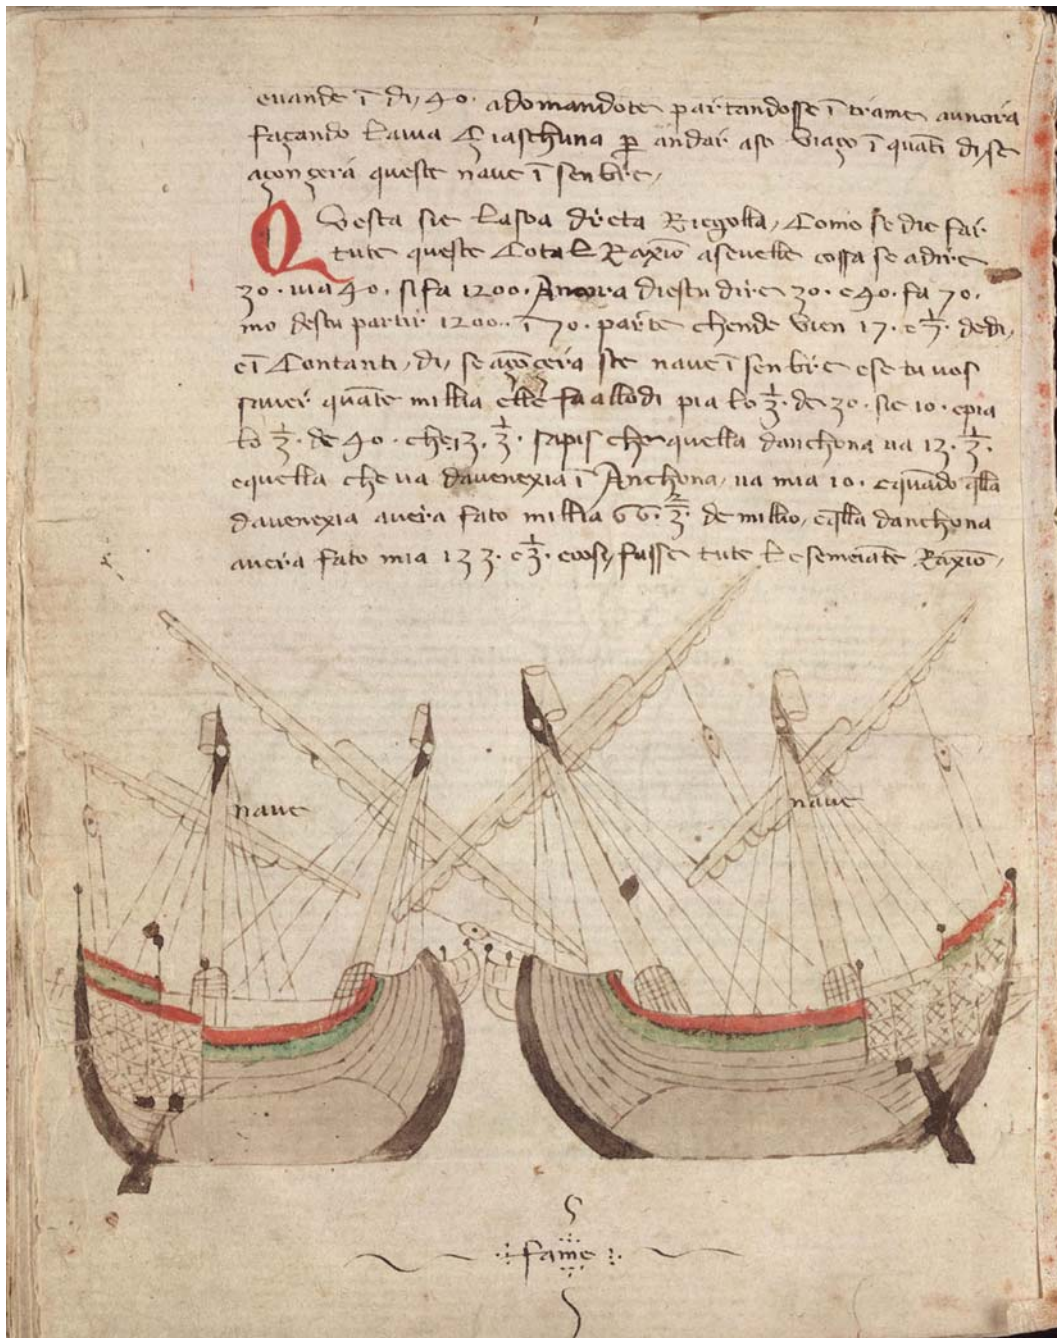 evande ī dj 40 adomandote partandosse ī trame avnora
façando lavia Ziaschuna p andar aso viaço ī quati dj se
açonçerà queste nave ī senbre
Questa sie lasoa dreta Riegolla, Como se die far
tute queste Cotal Raxiō asevelle cossa se adire
30 · via 40 · si fa 1200 · Ancora diestu dire 30 · e 40 · fa 70 ·
mo destu partir 1200 · ī 70 · parte chende vien 17 · e 1/7 · dedi,
e ī Contanti, di, se açōçerà ste nave ī senbre e se tu vos
saver quāte millia elle fa allo di pia lo 1/3 · de 30 · sie 10 · epia
lo 1/3 · de 40 · che 13 · 1/3 · sapis che quella danchona va 13 · 1/3 ·
equella che va davenexia ī Anchona, va mia 10 · equādo qlla
davenexia averà fato millia 66 · 2/3 · de millio, eqlla danchona
averà fato mia 133 · e 1/3 · ecosy fasse tute le semeiāte Raxiō
nave
nave
fame